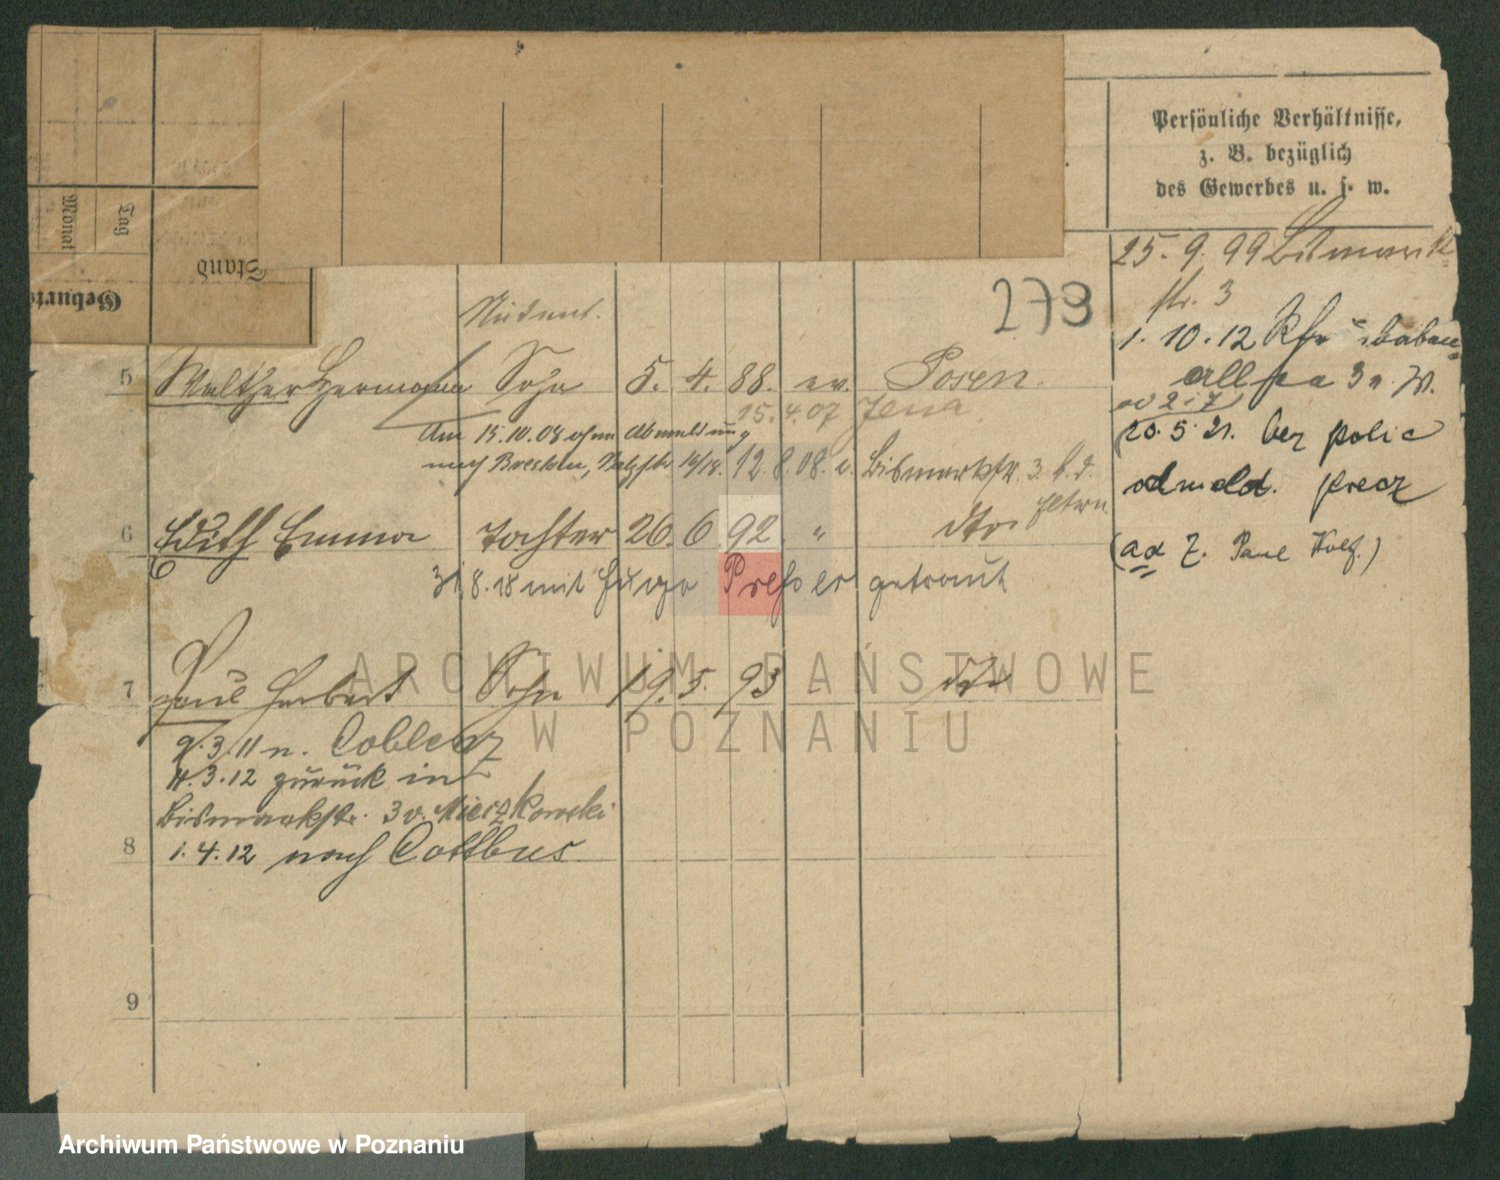 Persönliche Verhältnisse,
z. B. bezüglich
des Gewerbes u. s. w.
Tag
Monat
Stand
Geburts
279
25. 9. 99 Bismarck
str. 3
1. 10. 12
allee 3 a. W.
20. 5. 21. bez polic
odmeld. precz
(ad 7. Paul Wolf.)
Student.
5 Walther Hermann Sohn 5. 4. 88. ev. Posen.
15. 4. 07 Jena
Am 15.10.08 ohne Abmeldung
nach Breslau, 14/18. 12. 8. 08. v. Bismarckstr. 3 b. d.
Eltern
6 Edith Emma Tochter 26. 6. 92. " dto
31. 8. 18 mit Hugo getraut
7 Paul Herbert Sohn 19. 5. 93 dto
9. 3. 11 n. Coblenz
4. 3. 12 zurück in
Bismarckstr. 3 v. Mieczkowski
8 1. 4. 12 nach Cottbus
9
ARCHIWUM PAŃSTWOWE
W POZNANIU
Archiwum Państwowe w Poznaniu